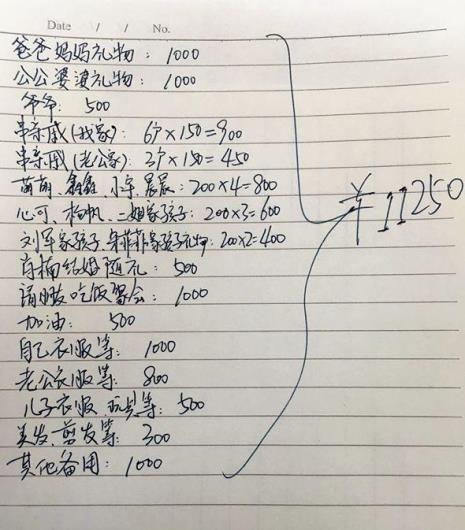 Date / / No.
爸爸妈妈礼物：1000
公公婆婆礼物：1000
爷爷：500
串亲戚（我家）：6户×150=900
串亲戚（老公家）：3户×150=450
苗苗、鑫鑫、小军、晨晨：200×4=800
心可、杨帆、二姐家孩子：200×3=600
刘军家孩子、菲菲家孩子礼物：200×2=400
结婚随礼：500
请 吃饭聚会：1000
加油：500
自己衣服等：1000
老公衣服等：800
儿子衣服、玩具等：500
美发、剪发等：300
其他备用：1000
￥11250